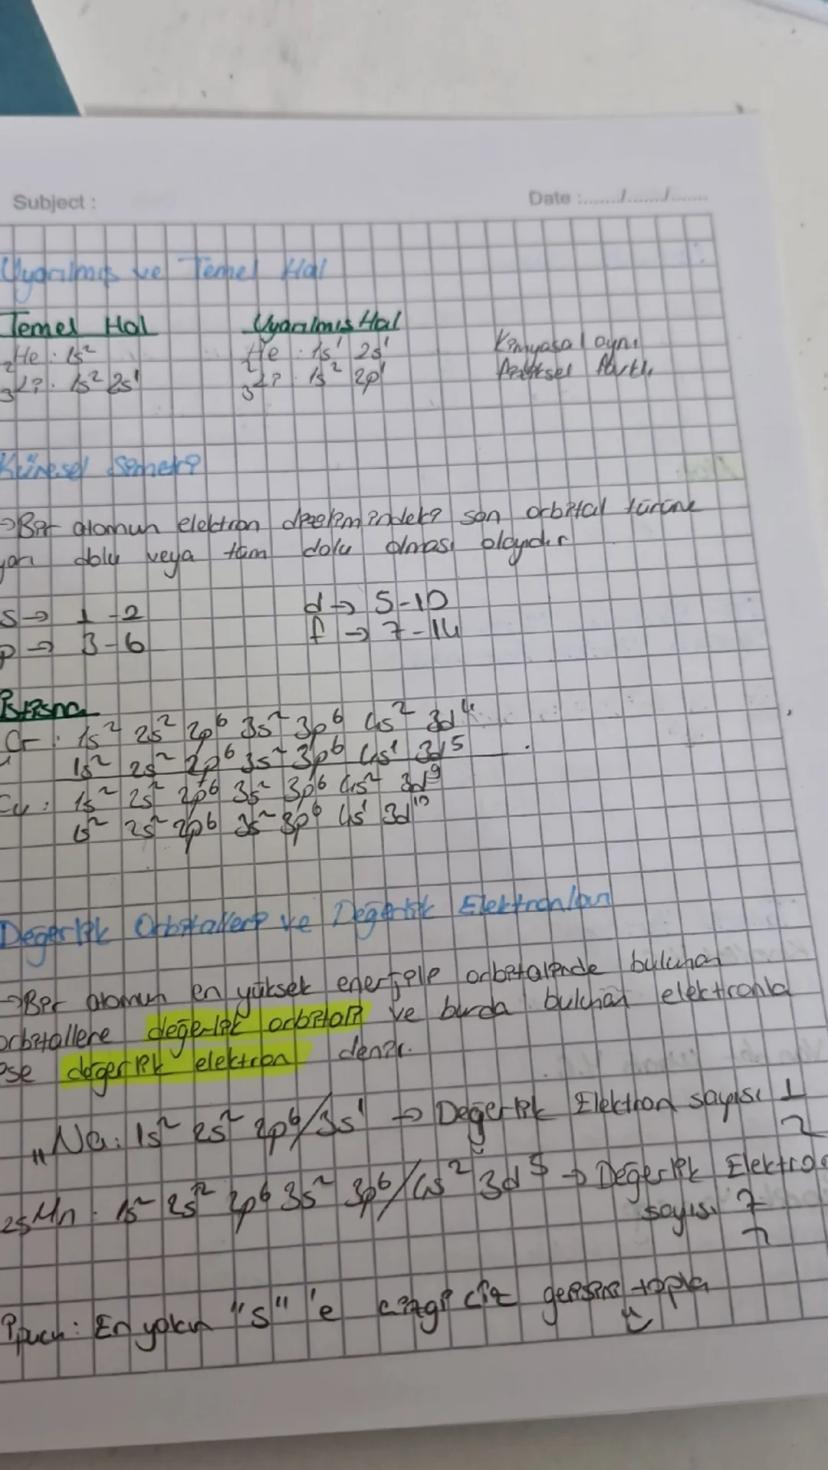 Subject :
Date :....../....../......
Uyarılmış ve Temel Hal
Temel Hal Uyarılmış Hal
₂He : 1s² ₂He : 1s¹ 2s¹ Kimyasal aynı
₃Li : 1s² 2s¹ ₃Li : 1s² 2p¹ Fiziksel farklı
Küresel Simetri
→Bir atomun elektron dizilimindeki son orbital türünün
yarı dolu veya tam dolu olması olayıdır
s → 1-2 d → 5-10
p → 3-6 f → 7-14
İstisna
Cr : 1s² 2s² 2p⁶ 3s² 3p⁶ 4s² 3d⁴
1s² 2s² 2p⁶ 3s² 3p⁶ 4s¹ 3d⁵
Cu : 1s² 2s² 2p⁶ 3s² 3p⁶ 4s² 3d⁹
1s² 2s² 2p⁶ 3s² 3p⁶ 4s¹ 3d¹⁰
Değerlik Orbitalleri ve Değerlik Elektronları
→Bir atomun en yüksek enerjili orbitalinde bulunan
orbitallere değerlik orbitali ve burda bulunan elektronla
ise değerlik elektron denir.
₁₁Na : 1s² 2s² 2p⁶/3s¹ → Değerlik Elektron sayısı 1
₂₅Mn : 1s² 2s² 2p⁶ 3s² 3p⁶/4s² 3d⁵ → Değerlik Elektro
sayısı 7
İpucu : En yakın "s" 'e çizgi çiz gerisini topla